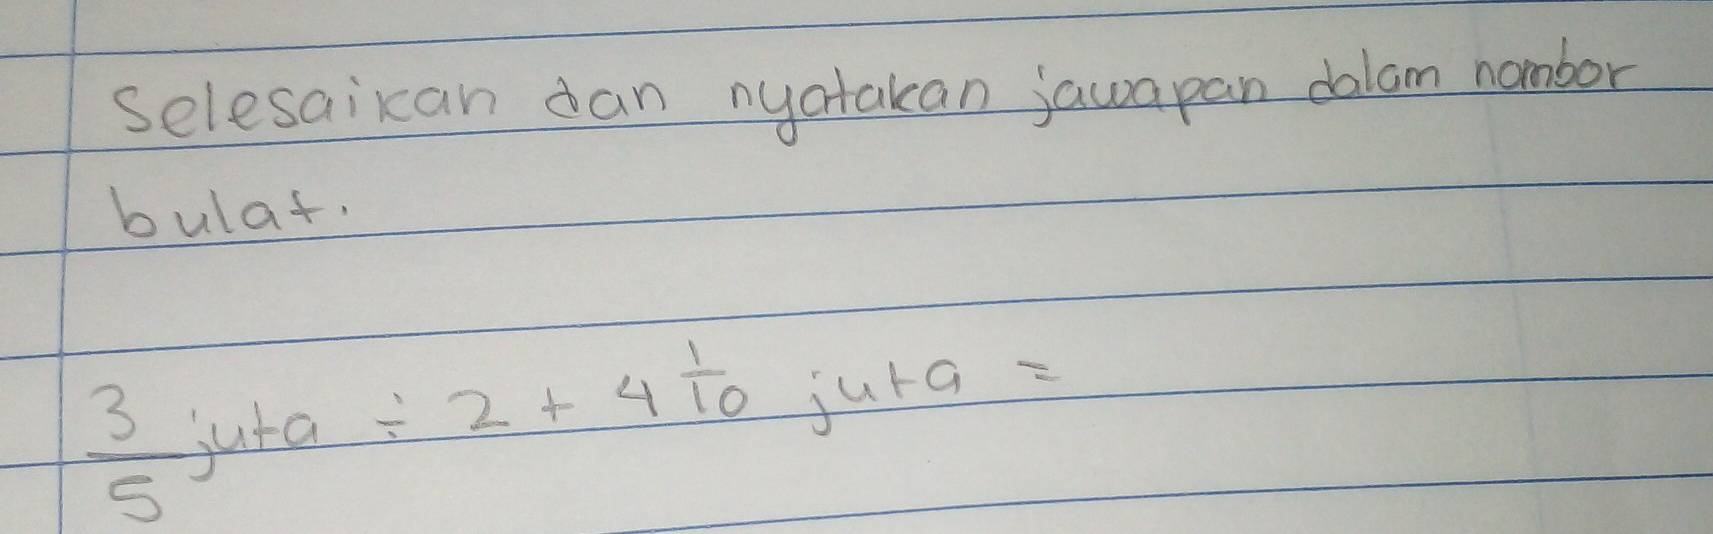 Selesaikan dan nyatakan jawapan dalam nombor
bulat.
3/5 juta ÷ 2 + 4 1/10 juta =